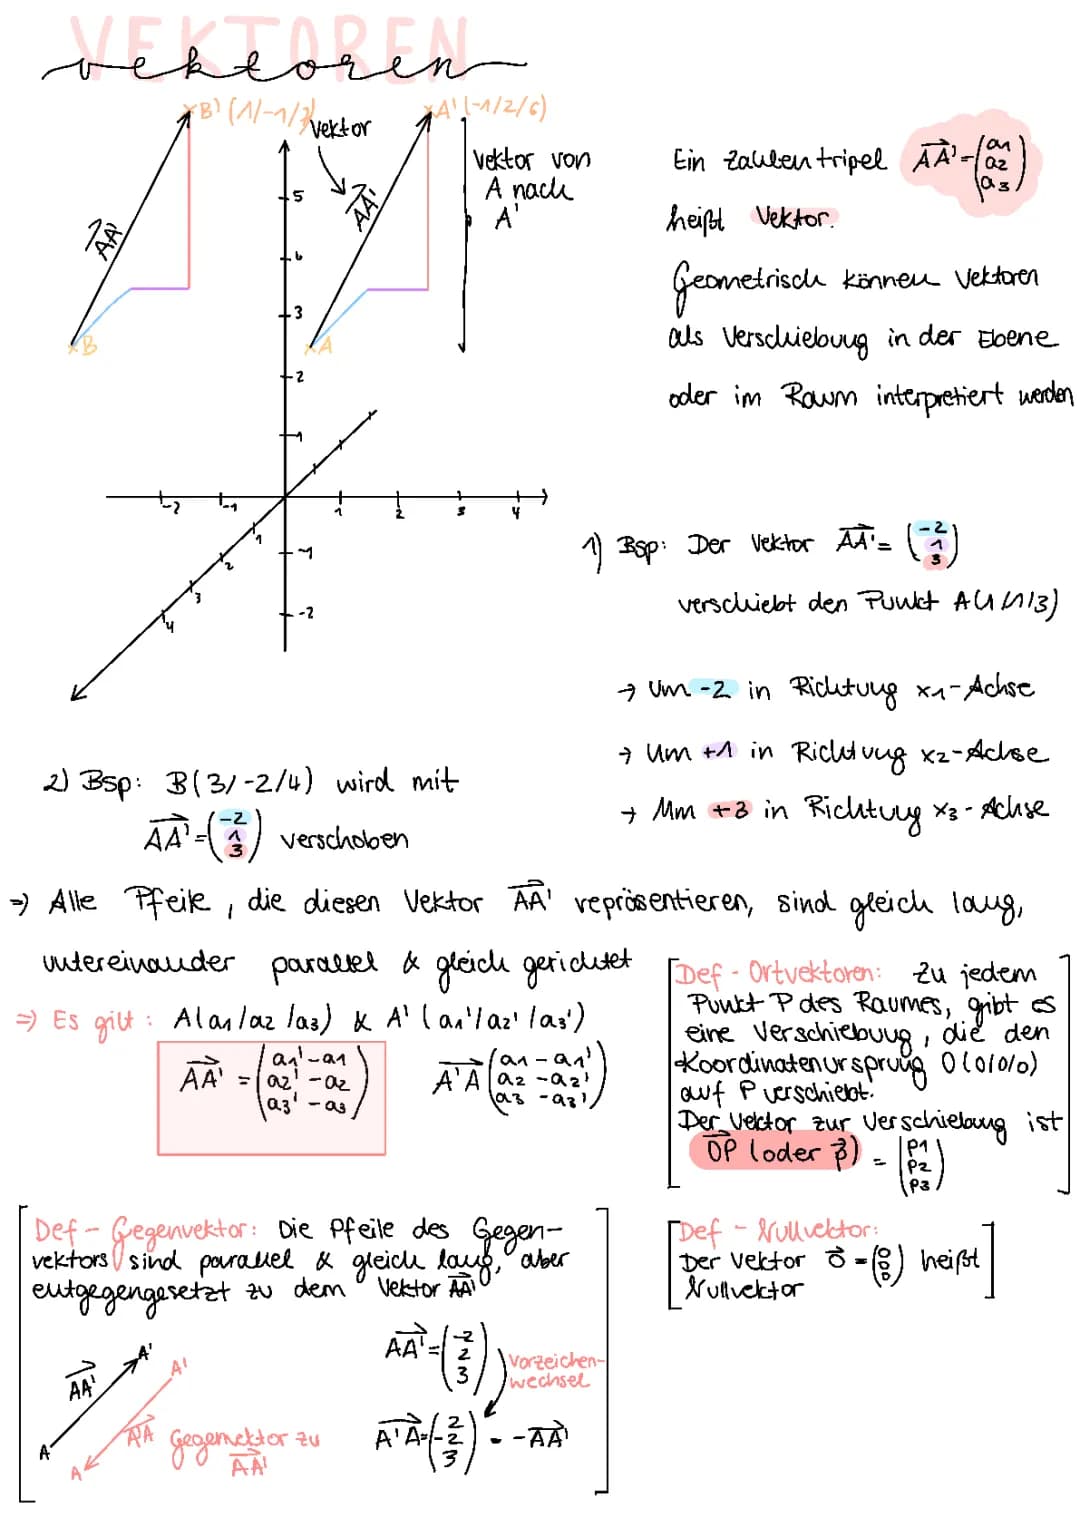 VEKTOREN
vektoren
B' (1/-1/7)
Vektor
A' (-1/2/6)
Vektor von
A nach
A'
AA'
AA'
B
A
5
4
3
2
1
-2
-1
1
2
3
4
-1
-2
1
2
3
4
Ein Zahlentripel AA' = (a1 a2 a3)
heißt Vektor.
Geometrisch können Vektoren
als Verschiebung in der Ebene
oder im Raum interpretiert werden
1) Bsp: Der Vektor AA' = (-2 1 3)
verschiebt den Punkt A(1/1/3)
→ Um -2 in Richtung x1-Achse
→ Um +1 in Richtung x2-Achse
→ Um +3 in Richtung x3-Achse
2) Bsp: B(3/-2/4) wird mit
AA' = (-2 1 3) verschoben
⇒ Alle Pfeile, die diesen Vektor AA' repräsentieren, sind gleich lang,
untereinander parallel & gleich gerichtet
⇒ Es gilt: A(a1/a2/a3) & A' (a1'/a2'/a3')
AA' = (a1'-a1 a2'-a2 a3'-a3)
A'A (a1-a1' a2-a2' a3-a3')
Def - Ortvektoren: Zu jedem
Punkt P des Raumes, gibt es
eine Verschiebung, die den
Koordinatenursprung O(0/0/0)
auf P verschiebt.
Der Vektor zur Verschiebung ist
OP (oder p) = (p1 p2 p3)
Def - Gegenvektor: Die Pfeile des Gegen-
vektors sind parallel & gleich lang, aber
entgegengesetzt zu dem Vektor AA'
AA'
A'
A
A'
A'A
A
Gegenvektor zu
AA'
AA' = (-2 2 3)
Vorzeichen-
wechsel
A'A = (2 -2 3) = -AA'
Def - Nullvektor:
Der Vektor o = (0 0 0) heißt
Nullvektor